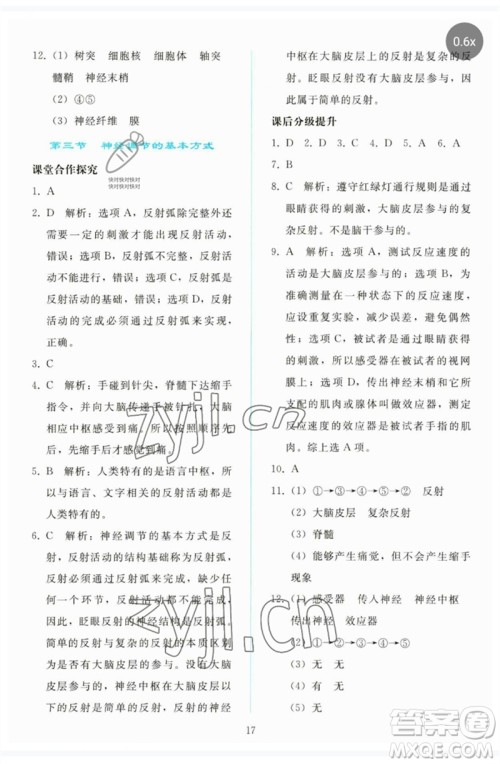 12. (1) 树突　细胞核　细胞体　轴突
髓鞘　神经末梢
(2) ④⑤
(3) 神经纤维　膜
第三节　神经调节的基本方式
快对快对快对
快对快对快对
课堂合作探究
1. A
2. D　解析：选项 A，反射弧不完整，或者
需要一定的刺激才能出现反射活动，
错误；选项 B，反射弧不完整不能出现
反射活动，错误；选项 C，反射弧是反
射活动的基础，错误；选项 D，反射弧
完整，反射活动才可能出现，反射弧
不完整，反射活动不可能出现，正确。
3. C
4. C　解析：手碰到针尖，脊髓发出缩手
指令，并向大脑传递被针扎，大脑
感觉到痛。从时间上看，缩手在
先，所以先缩手后感觉到痛。
5. B　解析：人类特有的是语言中枢，所
以与语言、文字相关的反射活动都是
人类特有的。
6. C　解析：神经调节的基本方式是反
射，反射的结构基础是反射弧，反射
必须通过反射弧来完成，缺少任何一
个环节，反射活动都不能完成，所以
反射的神经结构是反射弧。
简单的反射与复杂的反射的本质区别
为是否有大脑皮层的参与。
没有大脑皮层参与的，神经中枢在大
脑皮层以下的反射是简单的反射，神经
中枢在大脑皮层上的反射是复杂的反
射。眨眼反射没有大脑皮层参与，因
此是简单的反射。
课后分级提升
1. D　2. D　3. C　4. D　5. A　6. A
7. B
8. C　解析：遵守红绿灯通行规则是通过
眼睛感受外界刺激，经大脑参与的复
杂反射。不是脑干参与的。
9. A　解析：选项 A，测试反应速度的
活动是大脑皮层参与的反射活动，是
复杂的反射；选项 B，测试的反应速度，
应重复实验；选项 C，是通过眼睛获得
的刺激，所以感受器在被试者的视网
膜上；选项 D，效应器是神经末梢和它所
支配的肌肉或腺体叫做效应器，因此
测定反应速度的效应器是被试者手指的
肌肉。综上选 A。
10. A
11. (1) ①→③→④→⑤→②　反射
(2) 大脑皮层　复杂反射
(3) 脊髓
(4) 能够产生痛觉，但不能产生缩手
现象
12. (1) 感受器　传入神经　神经中枢
传出神经　效应器
(2) ①→②→③→④→⑤
(3) 无　无
(4) 有　无
(5) 无　无
17
0.6x
zyjl.cn
zyjl.cn
作业精灵